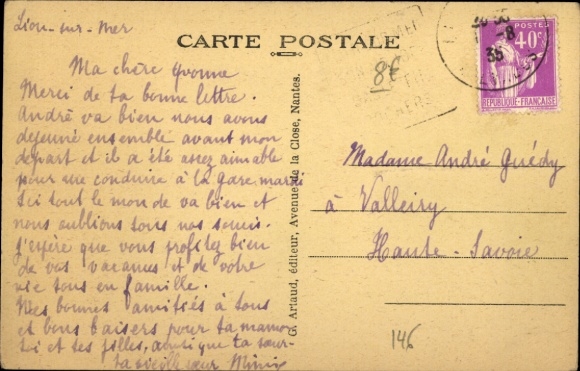 Lion-sur-Mer
CARTE POSTALE
8€
35
40c
REPUBLIQUE-FRANCAISE
Ma chère Yvonne
Merci de ta bonne lettre.
André va bien nous avons
dejeuné ensemble avant mon
depart et il a été assez aimable
pour me conduire à la gare mardi
Ici tout le monde va bien et
nous oublions tous nos soucis.
J'espère que vous profitez bien
de vos vacances et de votre
vie tous en famille.
Mes bonnes amitiés à tous
et bons baisers pour ta maman
toi et tes filles, ainsi que ta sœur
ta vieille sœur
G. Artaud, éditeur, Avenue de la Close, Nantes.
Madame André Guédy
à Valleiry
Haute-Savoie
146